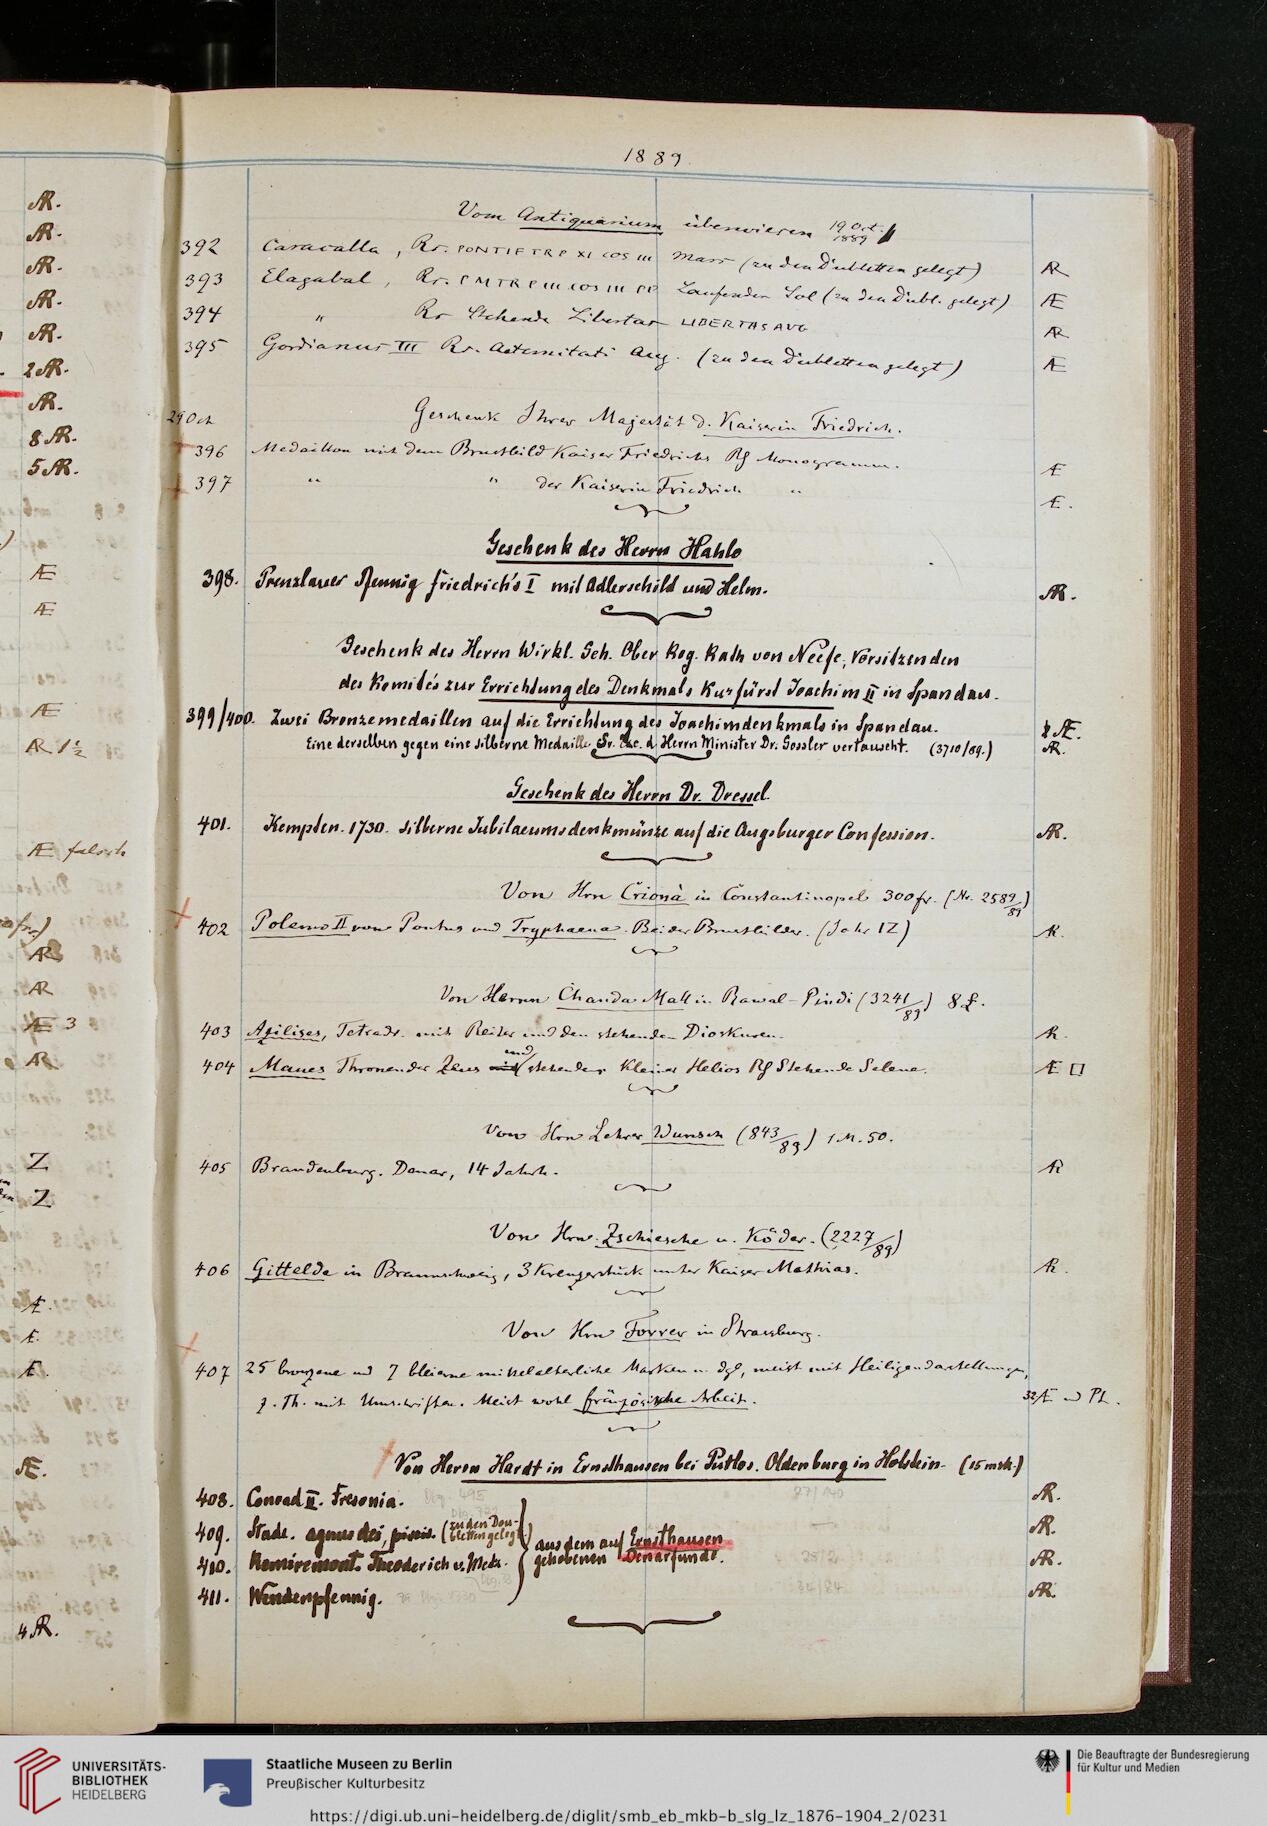 1889.
Vom Antiquarium überwiesen 19 Oct. 1889
392 Caracalla, Rs. PONTIF TR P XI COS III Mars (zu den Dubletten gelegt) AR
393 Elagabal, Rs. P M TR P III COS III PP Laufender Sol (zu den Dubl. gelegt) Æ
394 " Rs Stehende Libertas LIBERTAS AUG AR
395 Gordianus III Rs. Aeternitati Aug. (zu den Dubletten gelegt) Æ
29 Oct Geschenk Ihrer Majestät d. Kaiserin Friedrich.
396 Medaillon mit dem Brustbild Kaiser Friedrichs Rf Monogramm. Æ
397 " " der Kaiserin Friedrich " Æ.
Geschenk des Herrn Hahlo
398. Prenzlauer Pfennig Friedrich's I mit Adlerschild und Helm. AR.
Geschenk des Herrn Wirkl. Geh. Ober Reg. Rath von Neefe, Vorsitzenden
des Komité's zur Errichtung des Denkmals Kurfürst Joachim II in Spandau.
399/400. Zwei Bronzemedaillen auf die Errichtung des Joachimdenkmals in Spandau. 2 Æ.
Eine derselben gegen eine silberne Medaille Sr. Exc. d. Herrn Minister Dr. Gossler vertauscht. (3710/89.) AR.
Geschenk des Herrn Dr. Dressel.
401. Kempten. 1730. silberne Jubilaeumsdenkmünze auf die Augsburger Confession. AR.
Von Hrn Crionà in Constantinopel 300 fr. (Nr. 2589/89)
402 Polemo II von Pontus und Tryphaena. Beider Brustbilder. (Jahr 17) AR.
Von Herrn Chanda Mall in Rawal-Pindi (3241/89) 8 £.
403 Azilises, Tetradr. mit Reiter und den stehenden Dioskuren. AR.
404 Maues Thronender Zeus und stehender kleiner Helios Rf Stehende Selene. Æ □
Von Hrn Lehrer Wunsch (843/89) 1 M. 50.
405 Brandenburg. Denar, 14 Jahrh. AR
Von Hrn. Zschiesche u. Köder. (2227/89)
406 Gittelde in Braunschweig, 3 Kreuzerstück unter Kaiser Mathias. AR.
Von Hrn Forrer in Strassburg.
407 25 bronzene und 7 bleierne mittelalterliche Marken u. dgl, meist mit Heiligendarstellungen,
z. Th. mit Umschriften. Meist wohl französische Arbeit. 32 Æ und Pb.
Von Herrn Hardt in Ernsthausen bei Putlos. Oldenburg in Holstein. (15 mrk.)
408. Conrad II. Fresonia. AR.
409. Stade. agnus dei, (zu den Doubletten gelegt) AR.
410. Remiremont. Theoderich v. Metz. AR.
411. Wendenpfennig. AR.
aus dem auf Ernsthausen
gehobenen Denarfunde.
AR.
AR.
AR.
AR.
AR.
2 AR.
AR.
8 AR.
5 AR.
Æ
Æ
Æ
AR 1½
Æ falsch
AR
AR
Æ 3
AR
Z
Z
Æ.
Æ.
Æ.
Æ.
4 AR.
UNIVERSITÄTS-
BIBLIOTHEK
HEIDELBERG
Staatliche Museen zu Berlin
Preußischer Kulturbesitz
Die Beauftragte der Bundesregierung
für Kultur und Medien
https://digi.ub.uni-heidelberg.de/diglit/smb_eb_mkb-b_slg_lz_1876-1904_2/0231